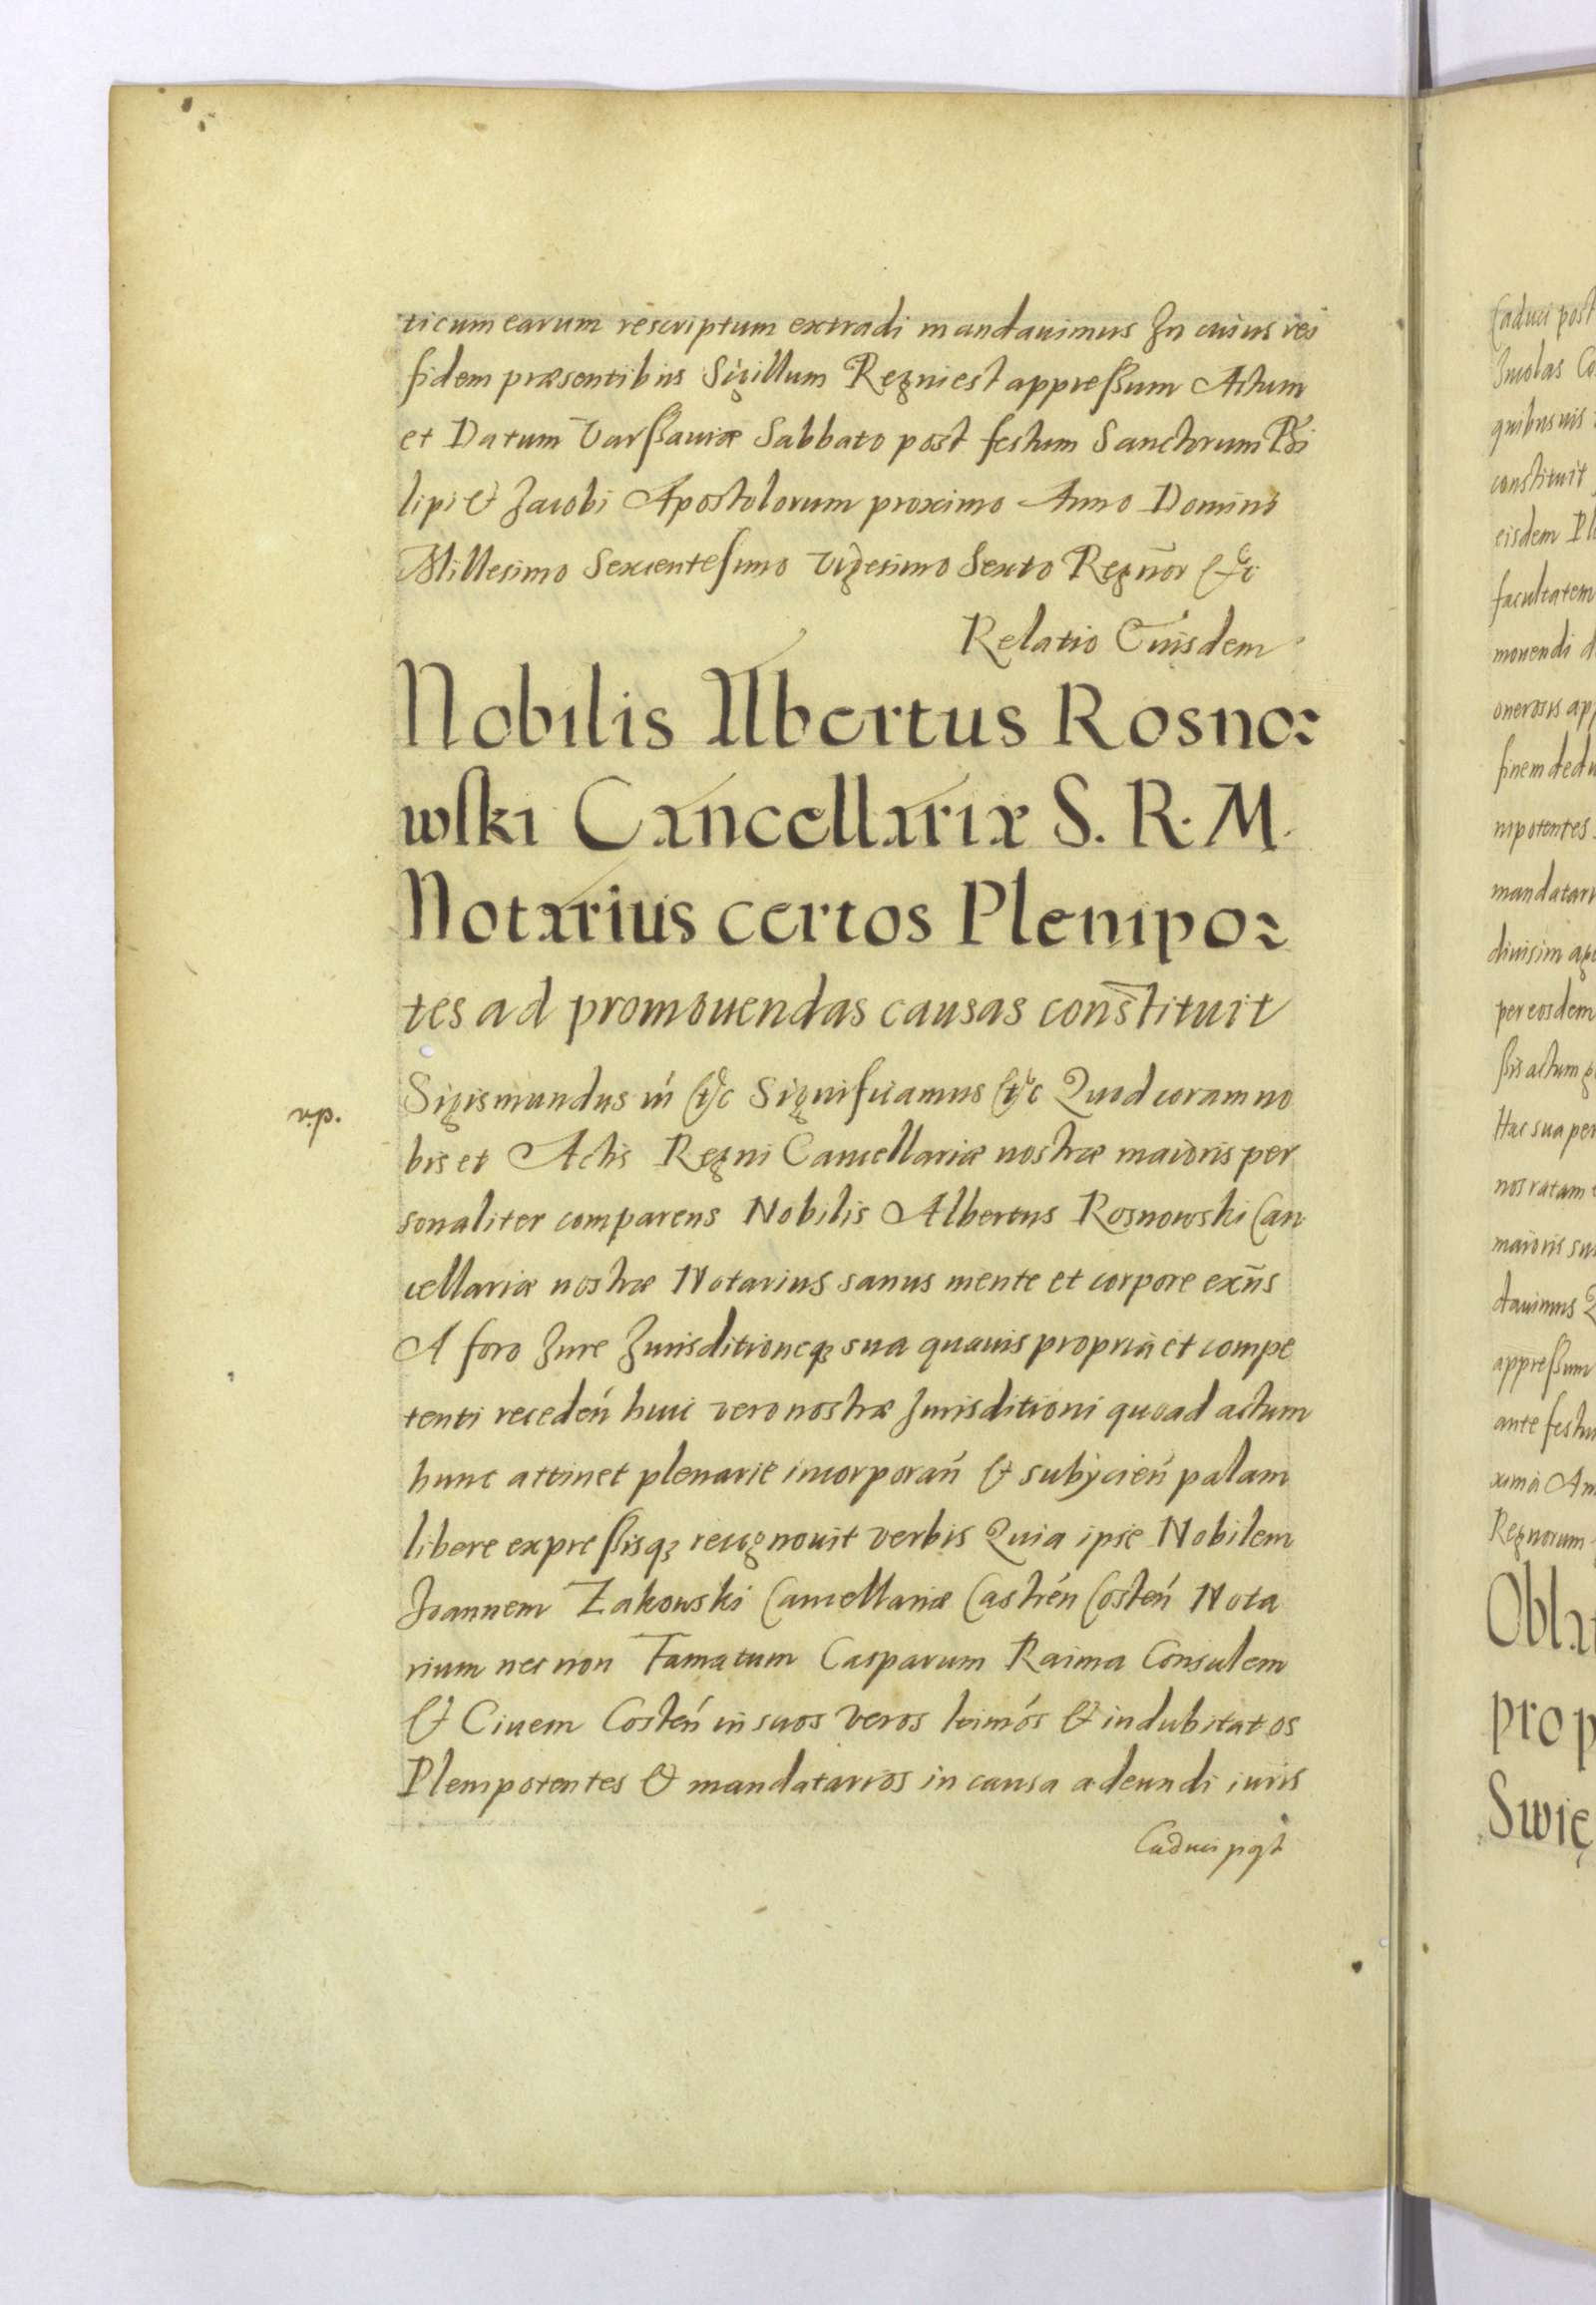 ticum earum rescriptum extradi mandauimus In cuius rei
fidem præsentibus Sigillum Regni est appressum Actum
et Datum Varssauiæ Sabbato post festum Sanctorum Phi
lipi et Jacobi Apostolorum proximo Anno Domini
Millesimo Sexcentesimo Vigesimo Sexto Regnor etc
Relatio Eiusdem
Nobilis Albertus Rosno:
wski Cancellariæ S. R. M.
Notarius certos Plenipo:
tes ad promouendas causas constituit
v.p.
Sigismundus iii etc Significamus etc Quod coram no
bis et Actis Regni Cancellariæ nostræ maioris per
sonaliter comparens Nobilis Albertus Rosnowski Can
cellariæ nostræ Notarius sanus mente et corpore exns
A foro Jure Jurisditioneq sua quauis propria et compe
tenti receden huic vero nostræ Jurisditioni quoad actum
hunc attinet plenarie incorporan et subijcien palam
libere expressisq recognouit verbis Quia ipse Nobilem
Joannem Zakowski Cancellariæ Castren Costen Nota
rium nec non Famatum Casparum Raima Consulem
et Ciuem Costen in suos veros ltimos et indubitatos
Plenipotentes et mandatarios in causa adeundi iuris
Caduci post
Caduci post
Incolas Co
quibusuis
constituit
eisdem Pl
facultatem
mouendi d
onerosis ap
finem dedu
nipotentes
mandatari
diuisim age
per eosdem
ssis actum
Hac sua per
nos ratam
maioris su
dauimus
appressum
ante festu
xima An
Regnorum
Obla
pro p
Swię